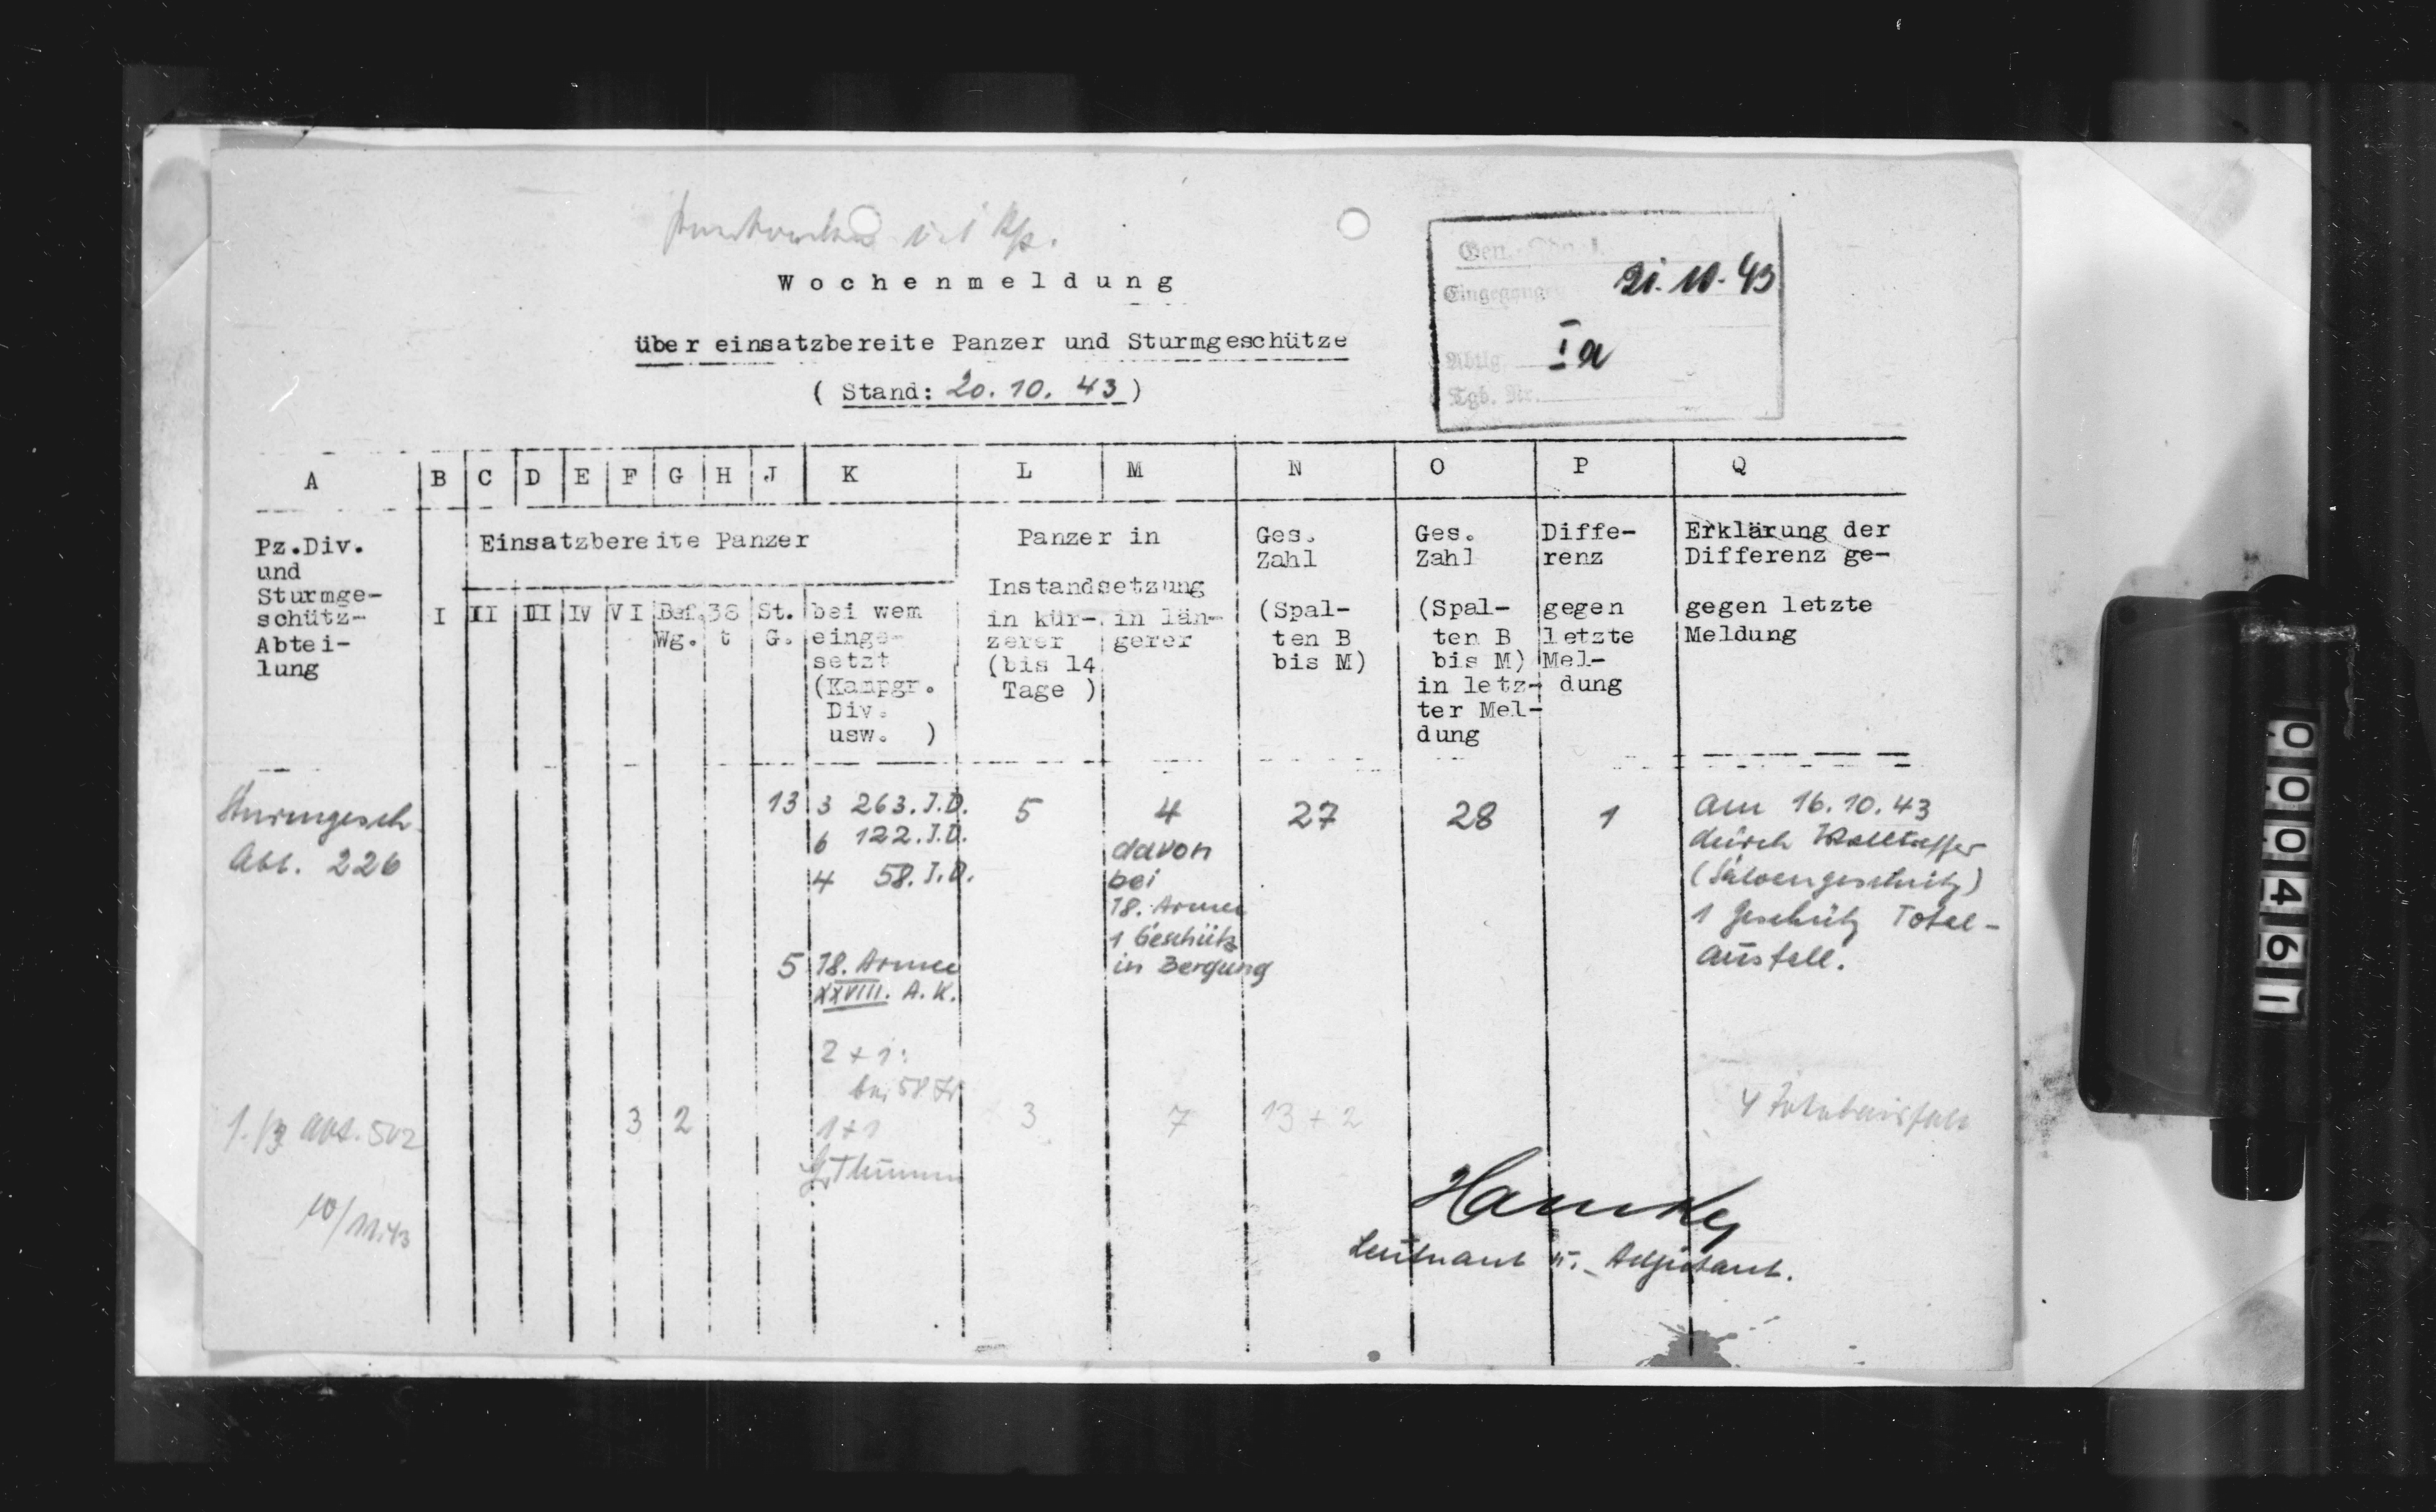 Wochenmeldung
über einsatzbereite Panzer und Sturmgeschütze
( Stand: 20. 10. 43 )
Eingegangen 21. 10. 43
Abtlg. Ia
Tgb. Nr.
A B C D E F G H J K L M N O P Q
Pz.Div.
und
Sturmge-
schütz-
Abtei-
lung
Einsatzbereite Panzer
I II III IV VI Bef. 38 St.
Wg. t G.
bei wem
einge-
setzt
(Kampgr.
Div.
usw. )
Panzer in
Instandsetzung
in kür-
zerer
(bis 14
Tage )
in län-
gerer
Ges.
Zahl
(Spal-
ten B
bis M)
Ges.
Zahl
(Spal-
ten B
bis M)
in letz-
ter Mel-
dung
Diffe-
renz
gegen
letzte
Mel-
dung
Erklärung der
Differenz ge-
gegen letzte
Meldung
Sturmgesch.
Abt. 226
13 3 263. I.D.
6 122. I.D.
4 58. I.D.
5 18. Armee
XXVIII. A. K.
5
4
davon
bei
18. Armee
1 Geschütz
in Bergung
27
28
1
am 16.10.43
durch Volltreffer
(Salvengeschütz)
1 Geschütz Total-
ausfall.
2 + 1
bei 58.
1./ Abt. 502
3 2
1+1
3
7
13 + 2
4 Totalausfall
Leutnant u. Adjutant.
000461